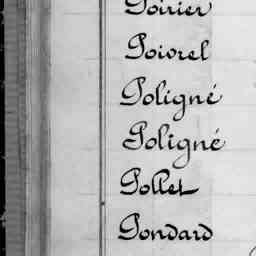 Poirier
Poivrel
Poligné
Poligné
Pollet
Pondard